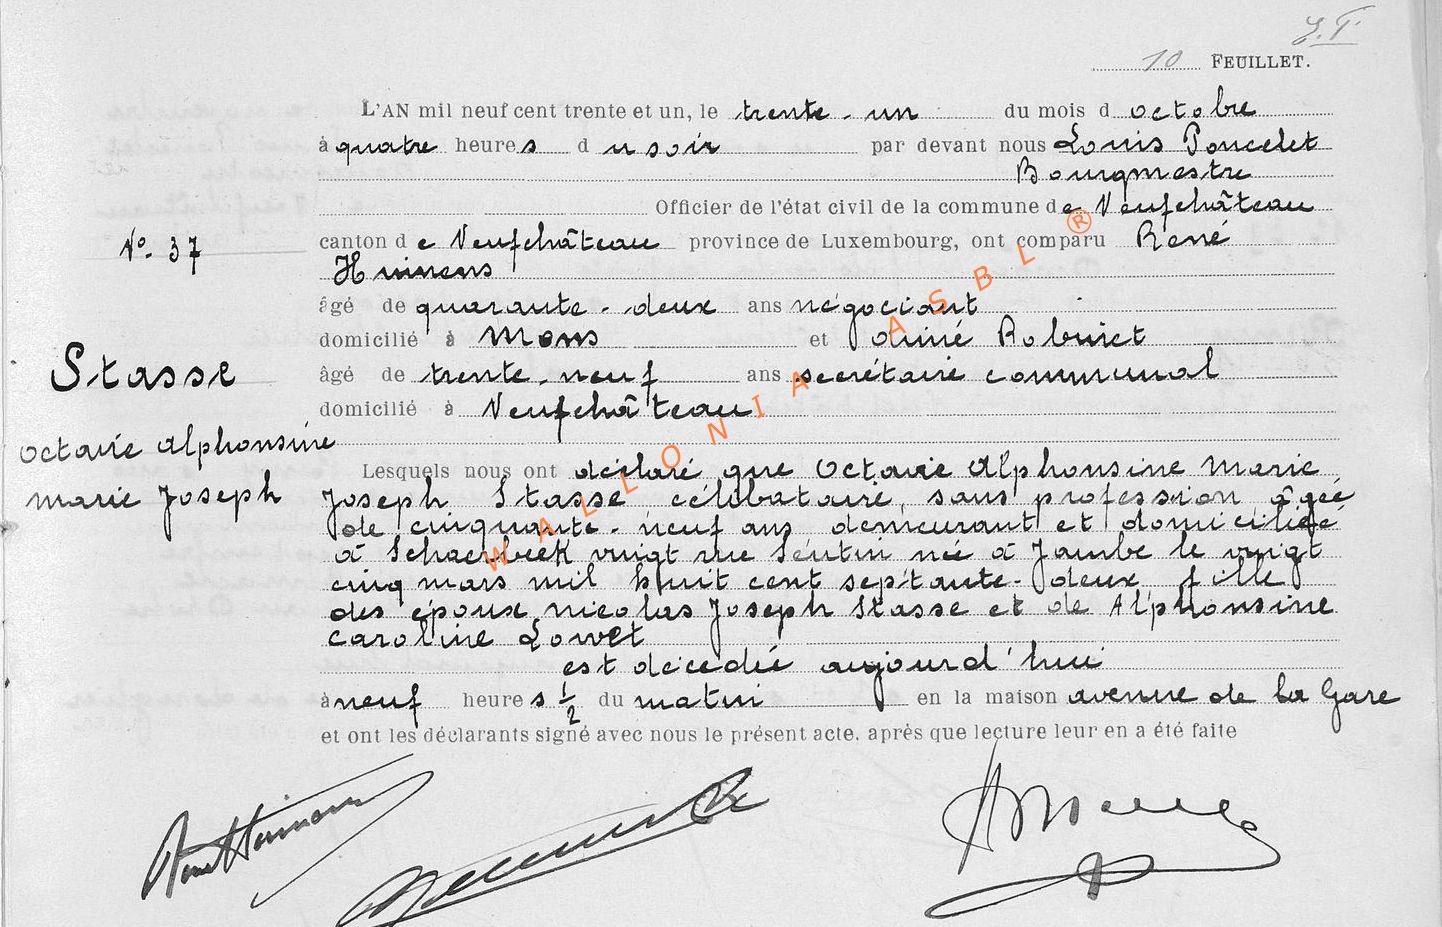 10 FEUILLET.
L'AN mil neuf cent trente et un, le trente-un du mois d octobre
à quatre heures du soir par devant nous Louis Poncelet
Bourgmestre
Officier de l'état civil de la commune de Neufchâteau
N° 37
canton de Neufchâteau province de Luxembourg, ont comparu René
âgé de quarante-deux ans négociant
domicilié à Mons et Aimé Robinet
Stasse
âgé de trente-neuf ans secrétaire communal
domicilié à Neufchâteau
Octavie Alphonsine
Marie Joseph
Lesquels nous ont déclaré que Octavie Alphonsine Marie
Joseph Stasse célibataire, sans profession âgée
de cinquante-neuf ans demeurant et domiciliée
à Schaerbeek vingt rue Seutin née à Jambe le vingt
cinq mars mil huit cent septante-deux fille
des époux Nicolas Joseph Stasse et de Alphonsine
Caroline
est décédée aujourd'hui
à neuf heures 1/2 du matin en la maison avenue de la Gare
et ont les déclarants signé avec nous le présent acte, après que lecture leur en a été faite
WALLONIA ASBL ®